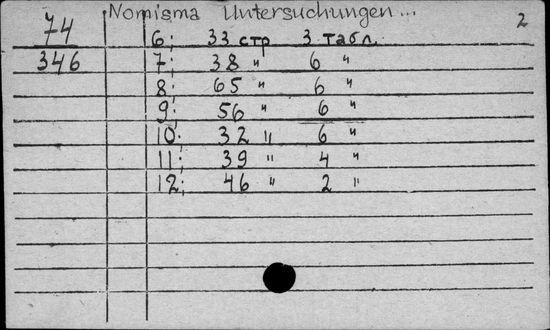 Nomisma Untersuchungen... 2
74 6; 33 стр 3 табл.
346 7; 38 " 6 "
8; 65 " 6 "
9; 56 " 6 "
10; 32 " 6 "
11; 39 " 4 "
12; 46 " 2 "